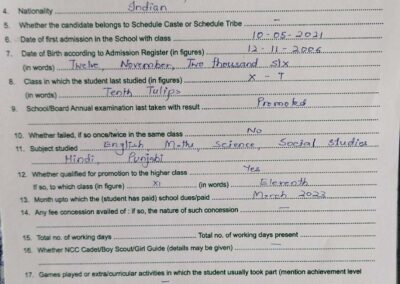 4. Nationality Indian
5. Whether the candidate belongs to Schedule Caste or Schedule Tribe –
6. Date of first admission in the School with class 10-05-2021
7. Date of Birth according to Admission Register (in figures) 12-11-2006
(in words) Twelve, November, Two thousand six
8. Class in which the student last studied (in figures) X - T
(in words) Tenth Tulips
9. School/Board Annual examination last taken with result Promoted
10. Whether failed, if so once/twice in the same class No
11. Subject studied English Maths, Science, Social Studies
Hindi, Punjabi
12. Whether qualified for promotion to the higher class Yes
If so, to which class (in figure) XI (in words) Eleventh
13. Month upto which the (student has paid) school dues/paid March 2022
14. Any fee concession availed of : if so, the nature of such concession —
15. Total no. of working days Total no. of working days present
16. Whether NCC Cadet/Boy Scout/Girl Guide (details may be given) —
17. Games played or extra/curricular activities in which the student usually took part (mention achievement level